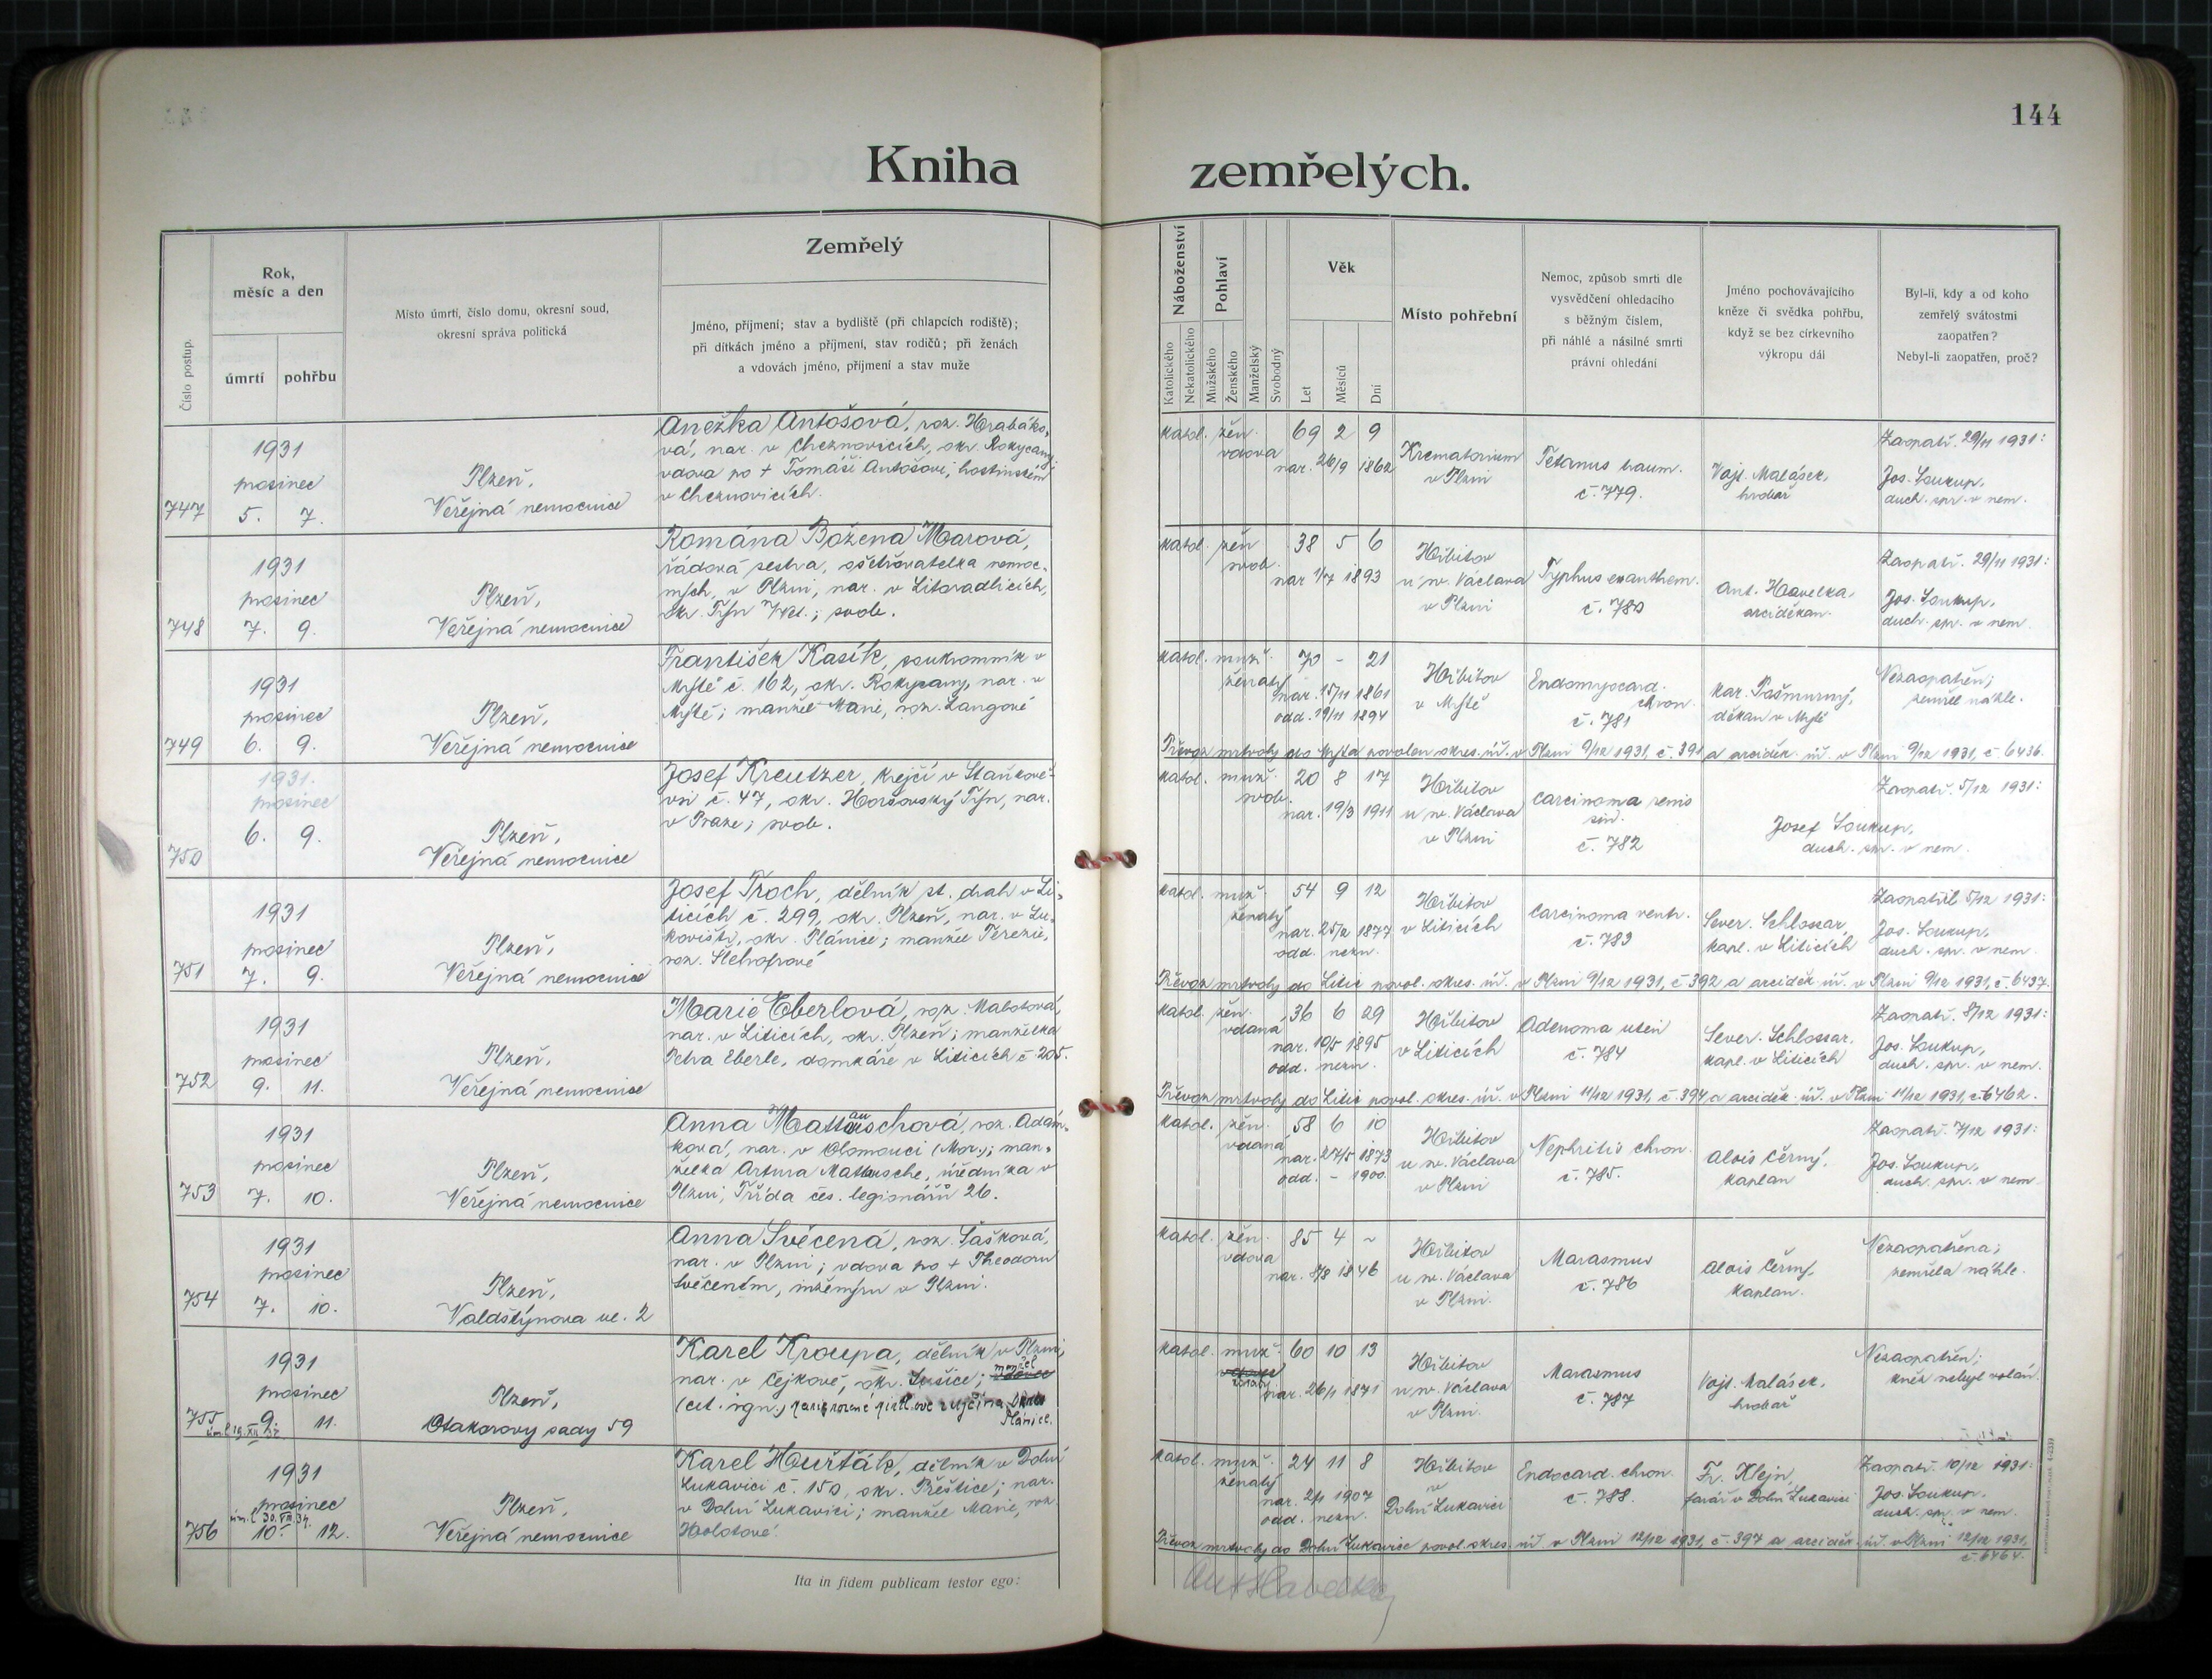 144
Kniha zemřelých.
Číslo postup.
Rok,
měsíc a den
úmrtí pohřbu
Místo úmrtí, číslo domu, okresní soud,
okresní správa politická
Zemřelý
Jméno, příjmení; stav a bydliště (při chlapcích rodiště);
při dítkách jméno a příjmení, stav rodičů; při ženách
a vdovách jméno, příjmení a stav muže
Náboženství
Katolického
Nekatolického
Pohlaví
Mužského
Ženského
Manželský
Svobodný
Věk
Let
Měsíců
Dní
Místo pohřební
Nemoc, způsob smrti dle
vysvědčení ohledacího
s běžným číslem,
při náhlé a násilné smrti
právní ohledání
Jméno pochovávajícího
kněze či svědka pohřbu,
když se bez církevního
výkropu dál
Byl-li, kdy a od koho
zemřelý svátostmi
zaopatřen?
Nebyl-li zaopatřen, proč?
747
1931
prosinec
5. 7.
Plzeň,
Veřejná nemocnice
Anežka Antošová, roz. Hrabáko-
vá, nar. v Cheznovicích, okr. Rokycany,
vdova po + Tomáši Antošovi, hostinském
v Cheznovicích.
katol. žen. 69 2 9
vdova
nar. 26/9 1862
Krematorium
v Plzni
Tetanus traum.
č. 779.
Vojt. Malásek,
hrobař
Zaopatř. 29/11 1931:
Jos. Soukup,
duch. spr. v nem.
748
1931
prosinec
7. 9.
Plzeň,
Veřejná nemocnice
Romána Božena Marová,
řádová sestra, ošetřovatelka nemoc-
ných, v Plzni, nar. v Litoradlicích,
okr. Týn n/Vlt.; svob.
katol. žen 38 5 6
svob.
nar 1/7 1893
Hřbitov
u sv. Václava
v Plzni
Typhus exanthem.
č. 780
Ant. Havelka,
arciděkan.
Zaopatř. 29/11 1931:
Jos. Soukup,
duch. spr. v nem.
749
1931
prosinec
6. 9.
Plzeň,
Veřejná nemocnice
František Kasík, soukromník v
Mýtě č. 162, okr. Rokycany, nar. v
Mýtě; manžel Marie, roz. Langové
katol. muž. 70 - 21
ženatý
nar. 15/11 1861
odd. 19/11 1894
Hřbitov
v Mýtě
Endomyocard.
chron.
č. 781
Kar. Pošmurný,
děkan v Mýtě
Nezaopatřen;
zemřel náhle.
Převoz mrtvoly do Mýta povolen okres. úř. v Plzni 9/12 1931, č. 391 a arciděk. úř. v Plzni 9/12 1931, č 6436.
750
1931.
prosinec
6. 9.
Plzeň,
Veřejná nemocnice
Josef Kreutzer, krejčí v Staňkově-
vsi č. 47, okr. Horšovský Týn, nar.
v Praze; svob.
katol. muž. 20 8 17
svob.
nar. 19/3 1911
Hřbitov
u sv. Václava
v Plzni
Carcinoma renis
sin.
č. 782
Zaopatř. 5/12 1931:
Josef Soukup,
duch. spr. v nem.
751
1931
prosinec
7. 9.
Plzeň,
Veřejná nemocnice
Josef Troch, dělník st. drah v Li-
ticích č. 299, okr. Plzeň, nar. v Lu-
kovišti, okr. Plánice; manžel Terezie,
katol. muž. 54 9 12
ženatý
nar. 25/2 1877
odd. nezn.
Hřbitov
v Liticích
Carcinoma ventr.
č. 783
Sever. Schlossar,
kapl. v Liticích
Zaopatřil 5/12 1931:
Jos. Soukup,
duch. spr. v nem.
Převoz mrtvoly do Litic povol. okres. úř. v Plzni 9/12 1931, č 392 a arciděk. úř. v Plzni 9/12 1931, č. 6437.
752
1931
prosinec
9. 11.
Plzeň,
Veřejná nemocnice
Marie Eberlová, roz. Mabotová,
nar. v Liticích, okr. Plzeň; manželka
Petra Eberle, domkáře v Liticích č 205.
katol. žen. 36 6 29
vdaná
nar. 10/5 1895
odd. nezn.
Hřbitov
v Liticích
Adenoma uteri
č. 784
Sever. Schlossar,
kapl. v Liticích
Zaopatř. 8/12 1931:
Jos. Soukup,
duch. spr. v nem.
Převoz mrtvoly do Litic povol. okres. úř. v Plzni 11/12 1931, č. 394 a arciděk. úř. v Plzni 11/12 1931, č 6462.
753
1931
prosinec
7. 10.
Plzeň,
Veřejná nemocnice
Anna Mattauschová, roz. Adám-
ková, nar. v Olomouci (Mor.); man-
želka Artura Mattausche, úředníka v
Plzni, Třída čes. legionářů 26.
katol. žen. 58 6 10
vdaná
nar. 27/5 1873
odd. - 1900.
Hřbitov
u sv. Václava
v Plzni
Nephritis chron.
č. 785.
Alois Černý,
kaplan
Zaopatř. 7/12 1931:
Jos. Soukup,
duch. spr. v nem.
754
1931
prosinec
7. 10.
Plzeň,
Valdštýnova ul. 2
Anna Svěcená, roz. Šašková,
nar. v Plzni; vdova po + Theodoru
Svěceném, inženýru v Plzni.
katol. žen. 85 4 ~
vdova
nar. 8/8 1846
Hřbitov
u sv. Václava
v Plzni.
Marasmus
č. 786
Alois Černý,
kaplan.
Nezaopatřena;
zemřela náhle.
755
1931
prosinec
9. 11.
Plzeň,
Otakarovy sady 59
Karel Kroupa, dělník v Plzni,
nar. v Čejkově, okr. Sušice; manžel
Plánice.
katol. muž. 60 10 13
ženatý
nar. 26/1 1871
Hřbitov
u sv. Václava
v Plzni.
Marasmus
č. 787
Vojt. Malásek,
hrobař
Nezaopatřen;
kněz nebyl volán.
756
1931
prosinec
10. 12.
Plzeň,
Veřejná nemocnice
Karel Houšťák, dělník v Dolní
Lukavici č. 150, okr. Přeštice; nar.
v Dolní Lukavici; manžel Marie, roz.
katol. muž. 24 11 8
ženatý
nar. 2/1 1907
odd. nezn.
Hřbitov
v
Dolní Lukavici
Endocard. chron.
č. 788.
Fr. Klejn,
farář v Dolní Lukavici
Zaopatř. 10/12 1931:
Jos. Soukup,
duch. spr. v nem.
Převoz mrtvoly do Dolní Lukavice povol. okres. úř. v Plzni 12/12 1931, č. 397 a arciděk. úř. v Plzni 12/12 1931,
č 6464.
Ita in fidem publicam testor ego:
Ant Havelka